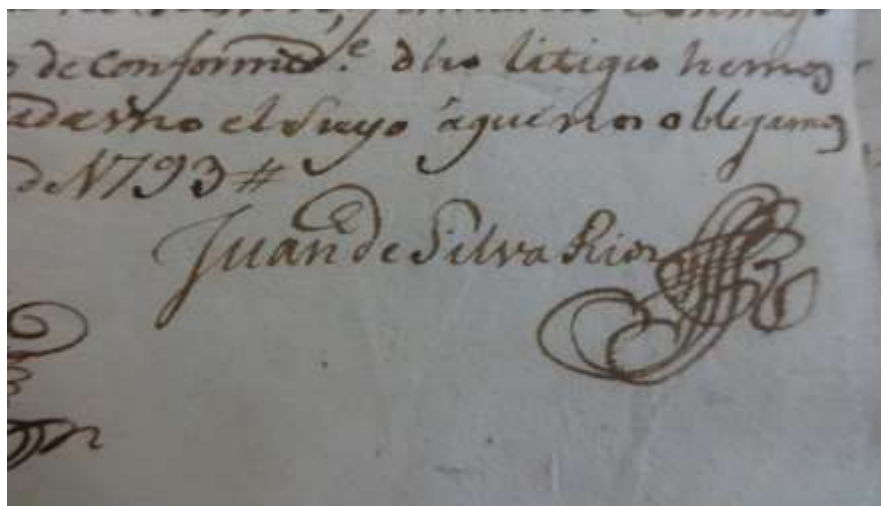 de conformid.e dho litigio hemos
cada uno el Suyo á que nos obligamos
de 1793 #
Juan de Silva Rios